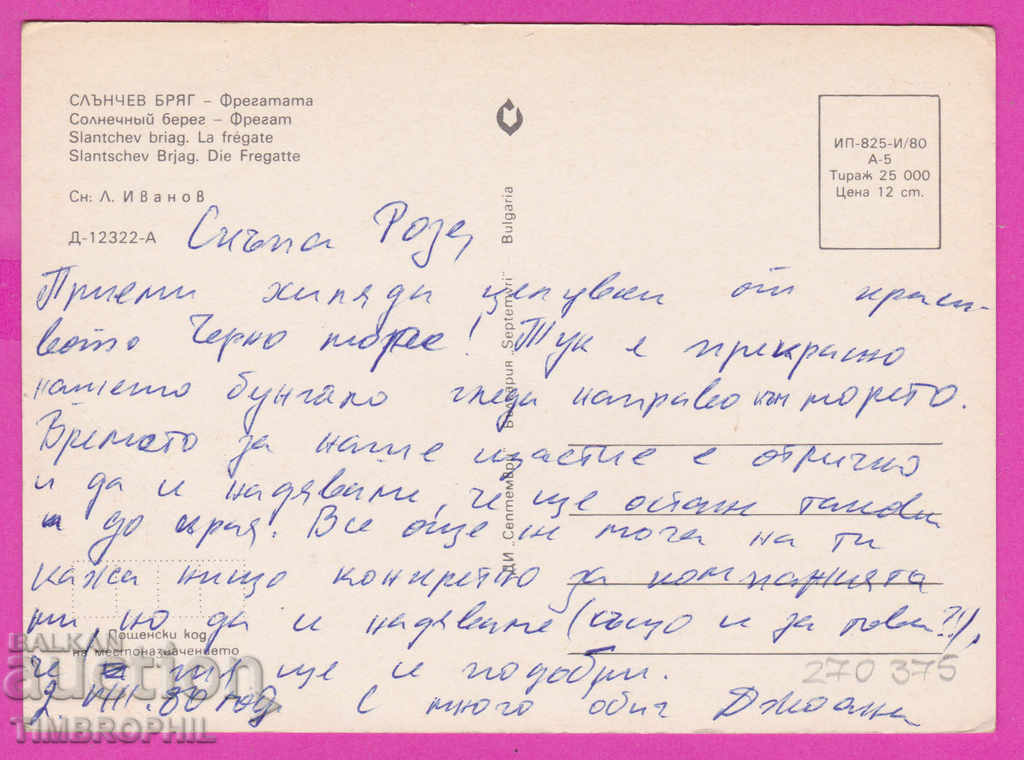 СЛЪНЧЕВ БРЯГ – Фрегатата
Солнечный берег – Фрегат
Slantchev briag. La frégate
Slantschev Brjag. Die Fregatte
Сн: Л. Иванов
Д-12322-А
ИП-825-И/80
А-5
Тираж 25 000
Цена 12 ст.
ДИ „Септември" България „Septemvri" Bulgaria
Скъпа Розе,
Приеми хиляди целувки от краси-
вото Черно море! Тук е прекрасно
нашето бунгало гледа направо към морето.
Времето за наше щастие е отлично
и да се надяваме, че ще остане такова
до края. Все още не мога на ти
кажа нищо конкретно за компанията
ми но да се надяваме (също и за това?!),
че тя ще се подобри.
2 VIII.80 год С много обич Джоана
Пощенски код
на местоназначението
270375
BALKAN
auction
TIMBROPHIL